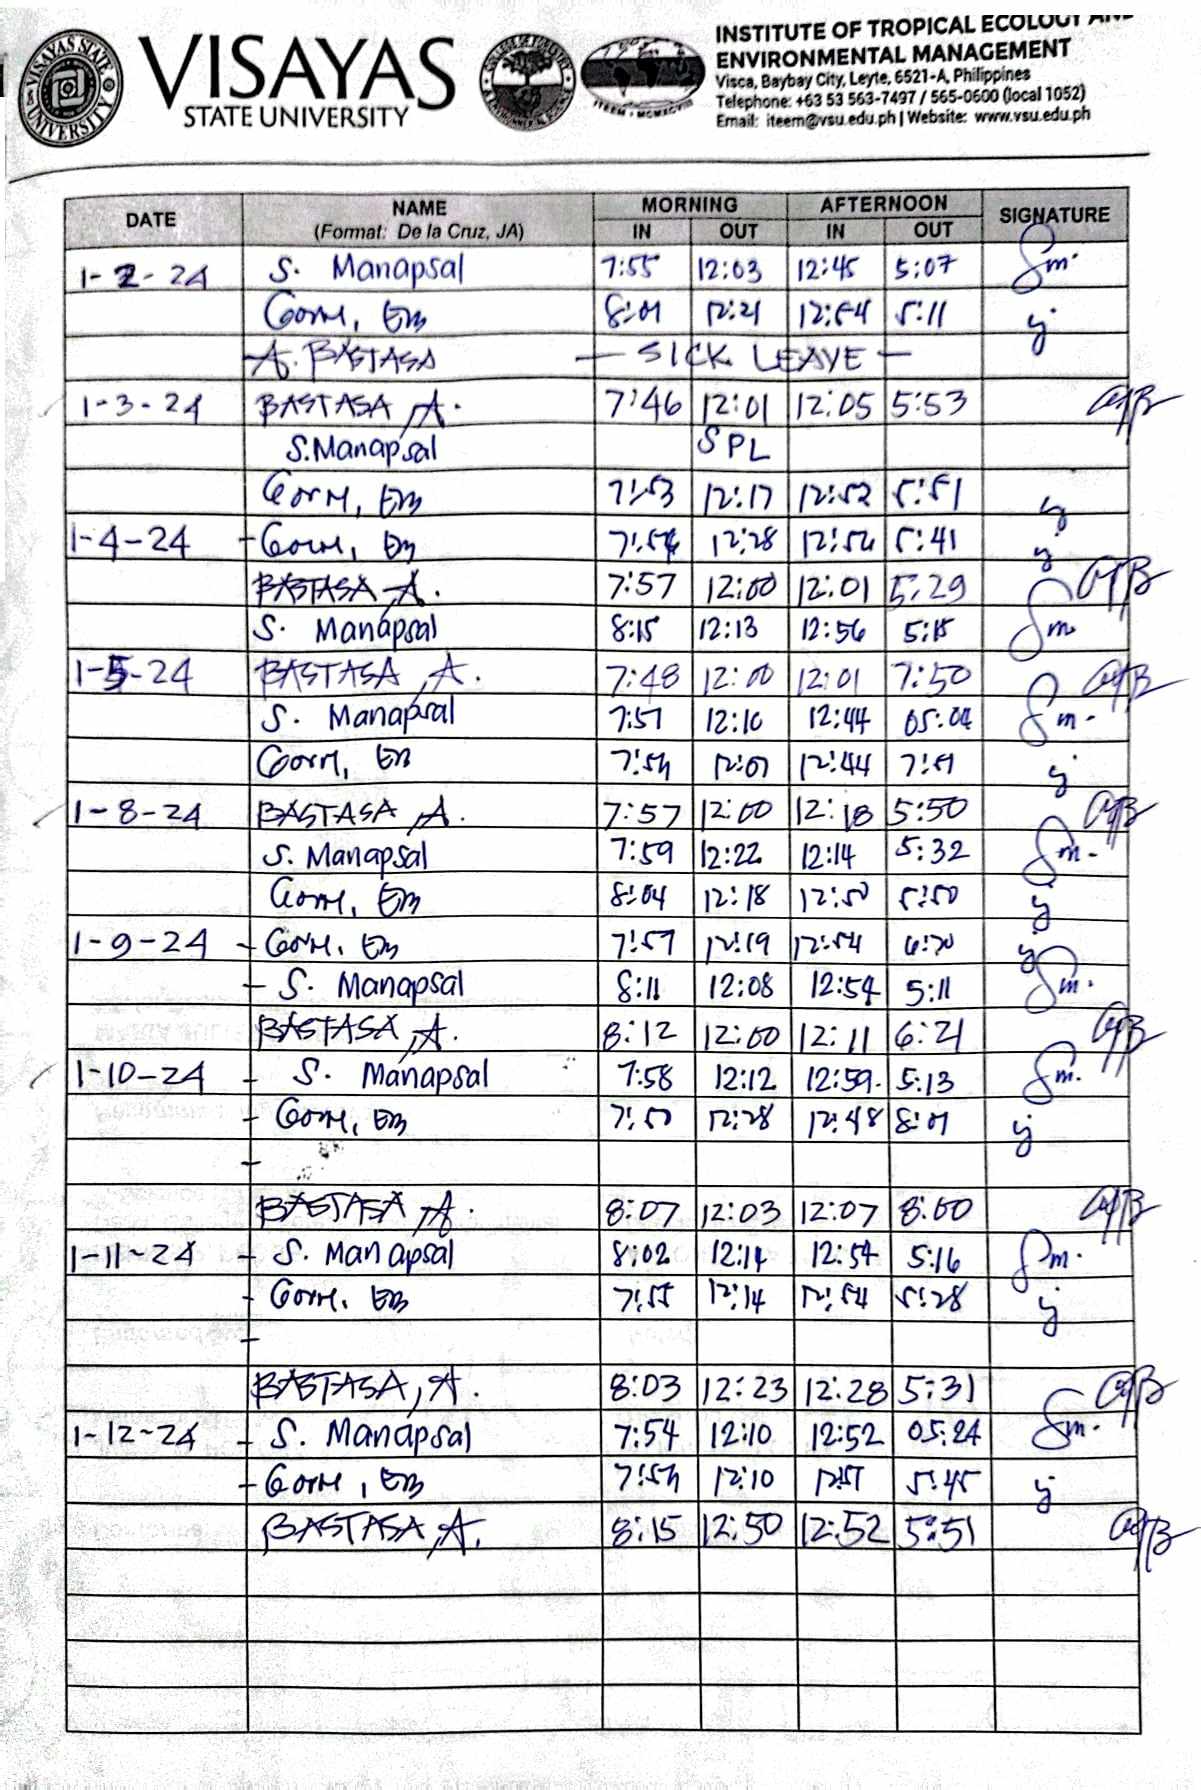 VISAYAS
STATE UNIVERSITY
VISAYAS STATE UNIVERSITY
INSTITUTE OF TROPICAL ECOLOGY AND
ENVIRONMENTAL MANAGEMENT
Visca, Baybay City, Leyte, 6521-A, Philippines
Telephone: +63 53 563-7497 / 565-0600 (local 1052)
Email: iteem@vsu.edu.ph | Website: www.vsu.edu.ph
DATE NAME MORNING AFTERNOON SIGNATURE
(Format: De la Cruz, JA) IN OUT IN OUT
1-2-24 S. Manapsal 7:55 12:03 12:45 5:07 Sm.
8:01 12:21 12:54 5:11
A. BASTASA — SICK LEAVE —
1-3-24 BASTASA, A. 7:46 12:01 12:05 5:53
S. Manapsal SPL
7:53 12:17 12:52 5:51
1-4-24 12:28 5:41
BASTASA, A. 7:57 12:00 12:01 5:29
S. Manapsal 8:15 12:13 12:56 5:15 Sm
1-5-24 BASTASA, A. 7:48 12:00 12:01 7:50
S. Manapsal 7:57 12:10 12:44 05:04 Sm.
12:44
1-8-24 BASTASA, A. 7:57 12:00 12:18 5:50
S. Manapsal 7:59 12:22 12:14 5:32 Sm.
8:04 12:18 12:50 5:50
1-9-24 12:19 12:54
- S. Manapsal 8:11 12:08 12:54 5:11 Sm.
BASTASA, A. 8:12 12:00 12:11 6:21
1-10-24 - S. Manapsal 7:58 12:12 12:59 5:13 Sm.
12:28 12:48 8:01
BASTASA, A. 8:07 12:03 12:07 8:00
1-11-24 - S. Manapsal 8:02 12:14 12:54 5:16 Sm.
7:55 12:14 12:54 5:28
BASTASA, A. 8:03 12:23 12:28 5:31
1-12-24 - S. Manapsal 7:54 12:10 12:52 05:24 Sm.
12:10 5:45
BASTASA, A. 8:15 12:50 12:52 5:51